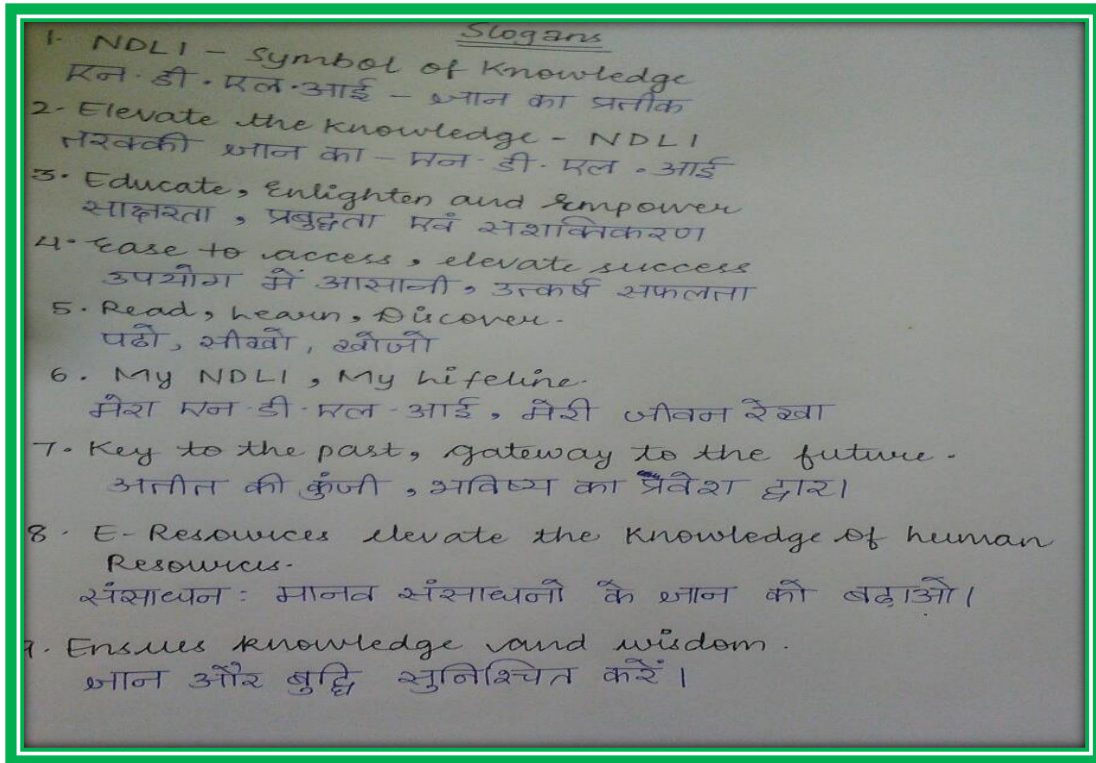 Slogans
1- NDLI - Symbol of Knowledge
एन·डी·एल·आई - ज्ञान का प्रतीक
2- Elevate the Knowledge - NDLI
तरक्की ज्ञान का - एन·डी·एल·आई
3· Educate, Enlighten and Empower
साक्षरता, प्रबुद्धता एवं सशक्तिकरण
4· Ease to access, elevate success
उपयोग में आसानी, उत्कर्ष सफलता
5. Read, Learn, Discover.
पढो, सीखो, खोजो
6. My NDLI, My Lifeline.
मेरा एन·डी·एल·आई, मेरी जीवन रेखा
7. Key to the past, gateway to the future.
अतीत की कुंजी, भविष्य का प्रवेश द्वार।
8. E-Resources elevate the Knowledge of human
Resources.
संसाधन: मानव संसाधनो के ज्ञान को बढ़ाओ।
9. Ensues knowledge and wisdom.
ज्ञान और बुद्धि सुनिश्चित करें।